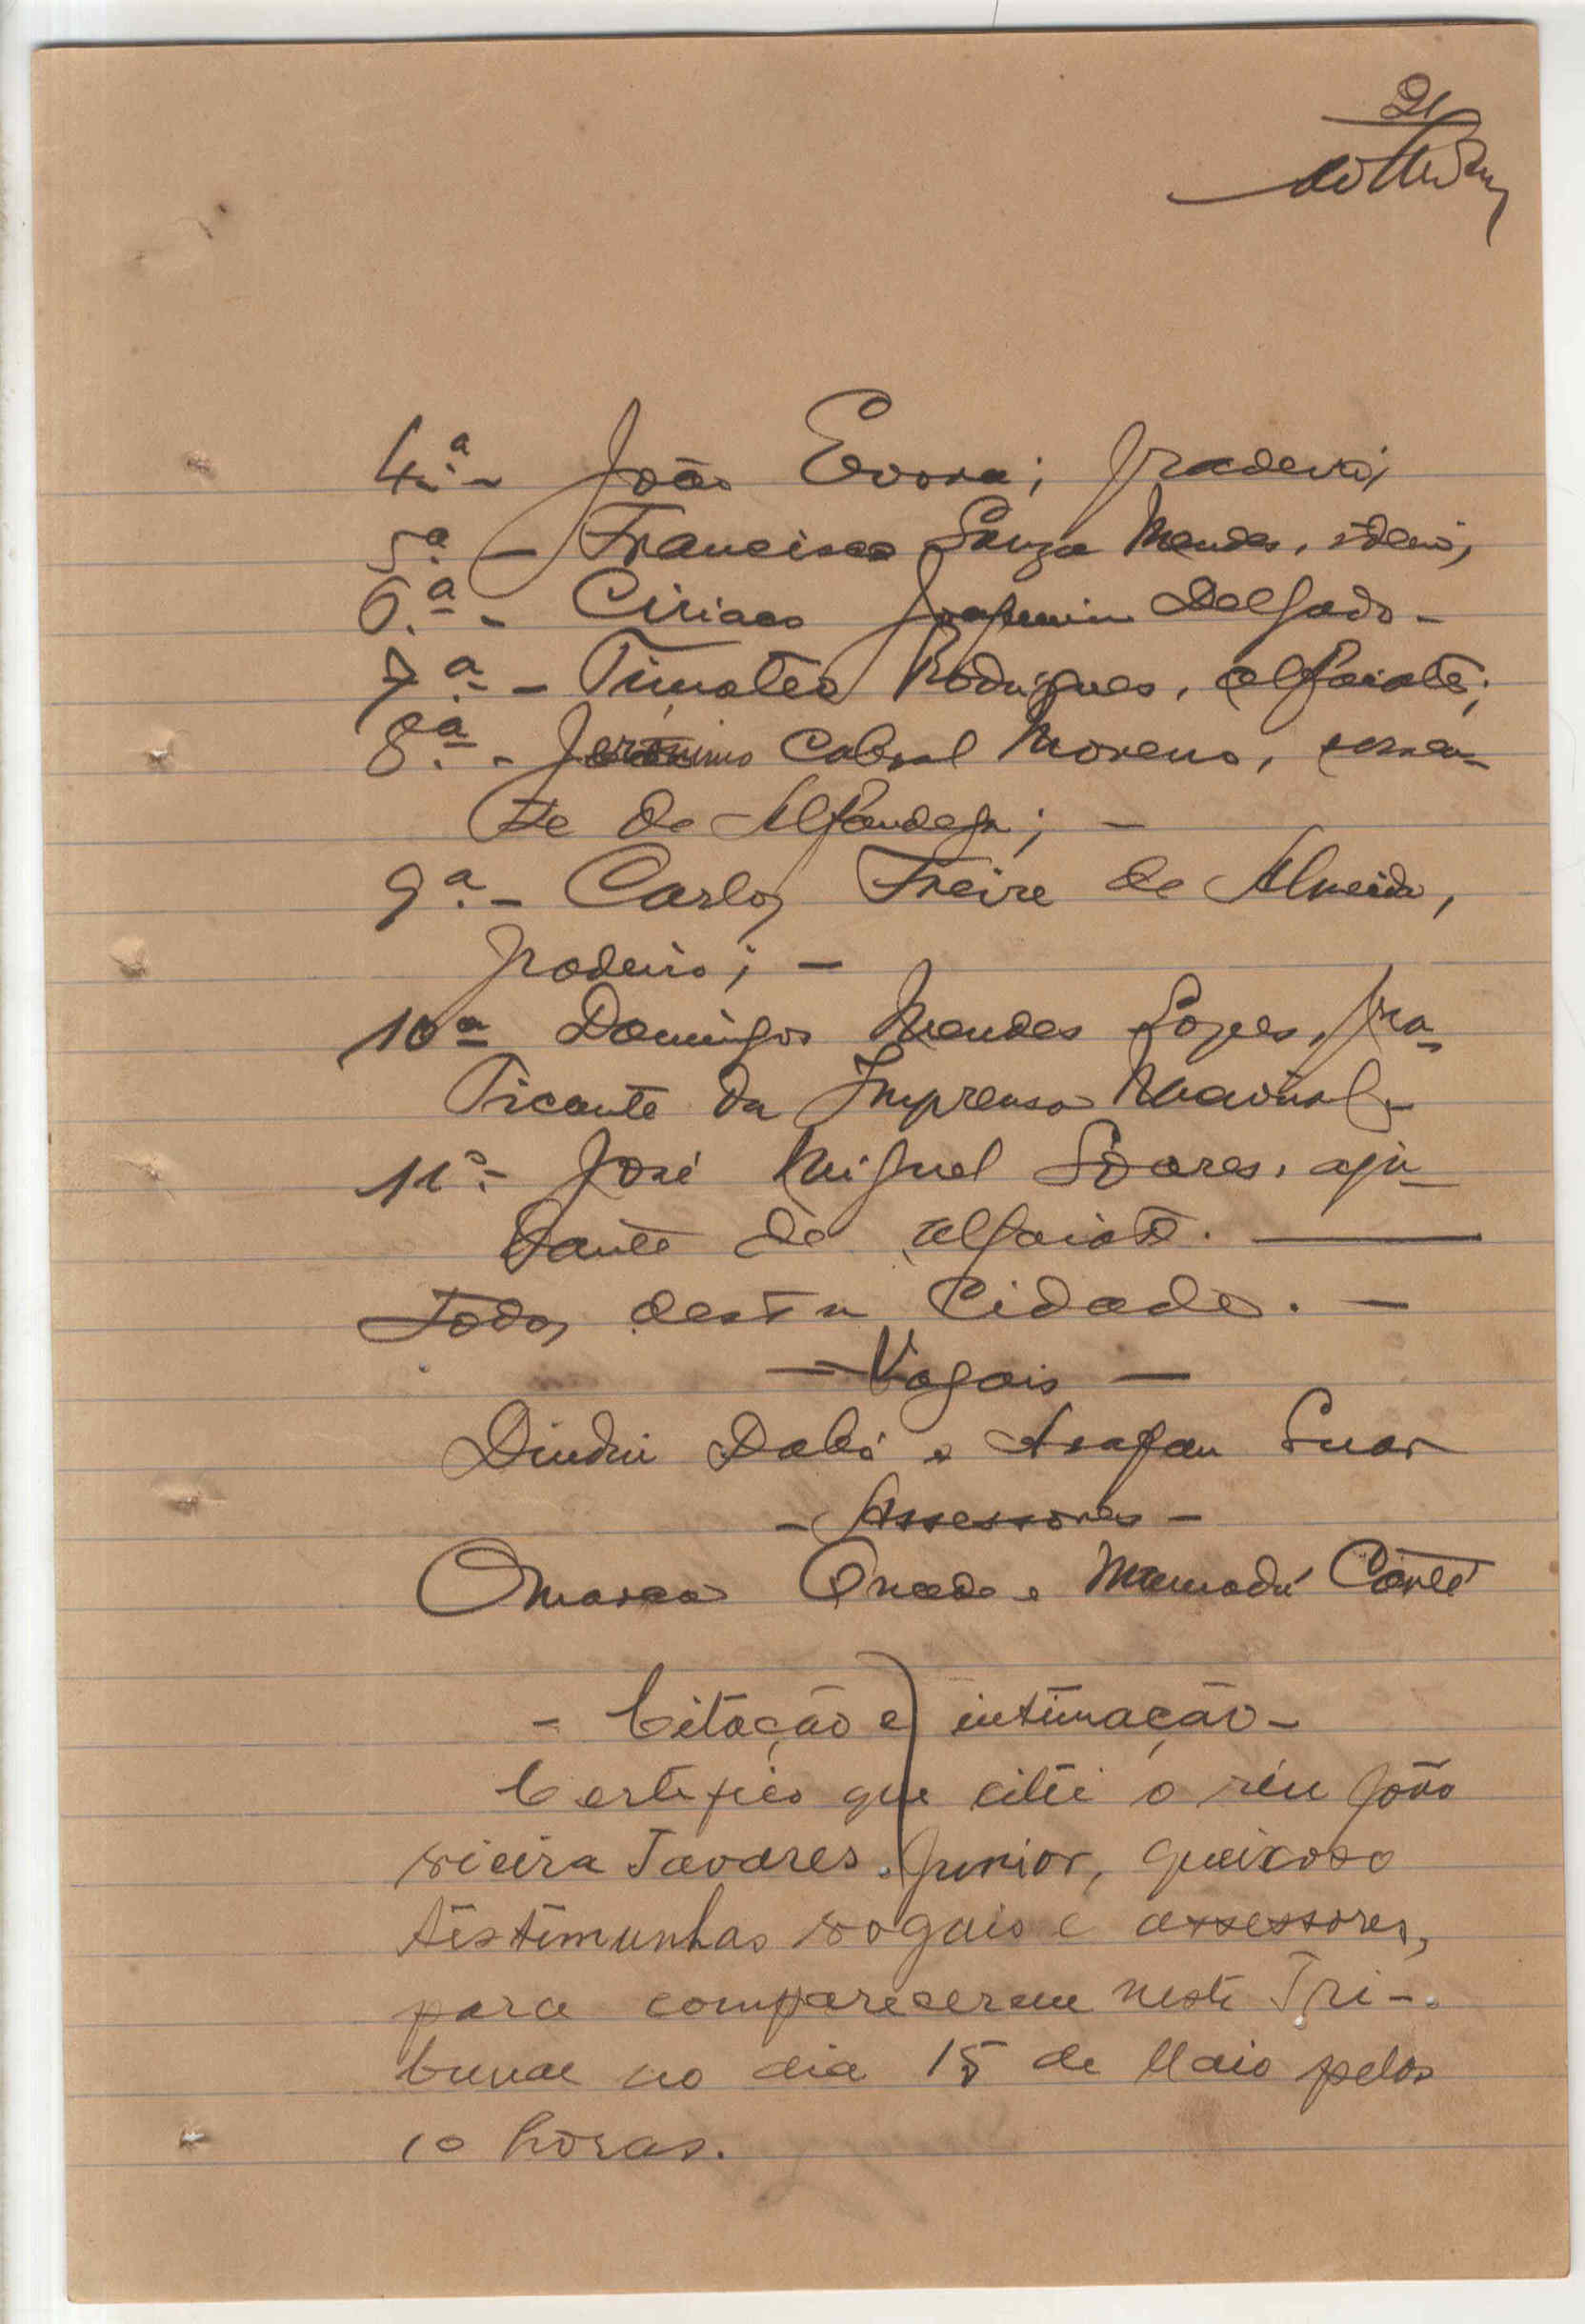 21
4.ª - João Evora; padeiro;
5.ª - Francisco Souza Mendes, idem;
6.ª - Ciriaco Joaquim Delgado -
7.ª - Timoteo Rodrigues, alfaiate;
8.ª - Jerónimo Cabral Moreno, serven-
te da Alfandega; -
9.ª - Carlos Freire de Almeida,
padeiro; -
10ª Domingos Mendes Lopes, pra-
ticante da Imprensa Nacional -
11ª - José Miguel Soares, aju-
dante de alfaiate.
Todos desta Cidade. -
- Vogais -
Dindin Dabó e Arafan Suar
- Assessores -
Omarao e Mamadú
- Citação e intimação -
Certifico que citei o réu João
vieira Tavares Junior, queixoso
testimunhas vogais e assessores,
para comparecerem neste Tri-
bunal no dia 15 de Maio pelas
10 horas.